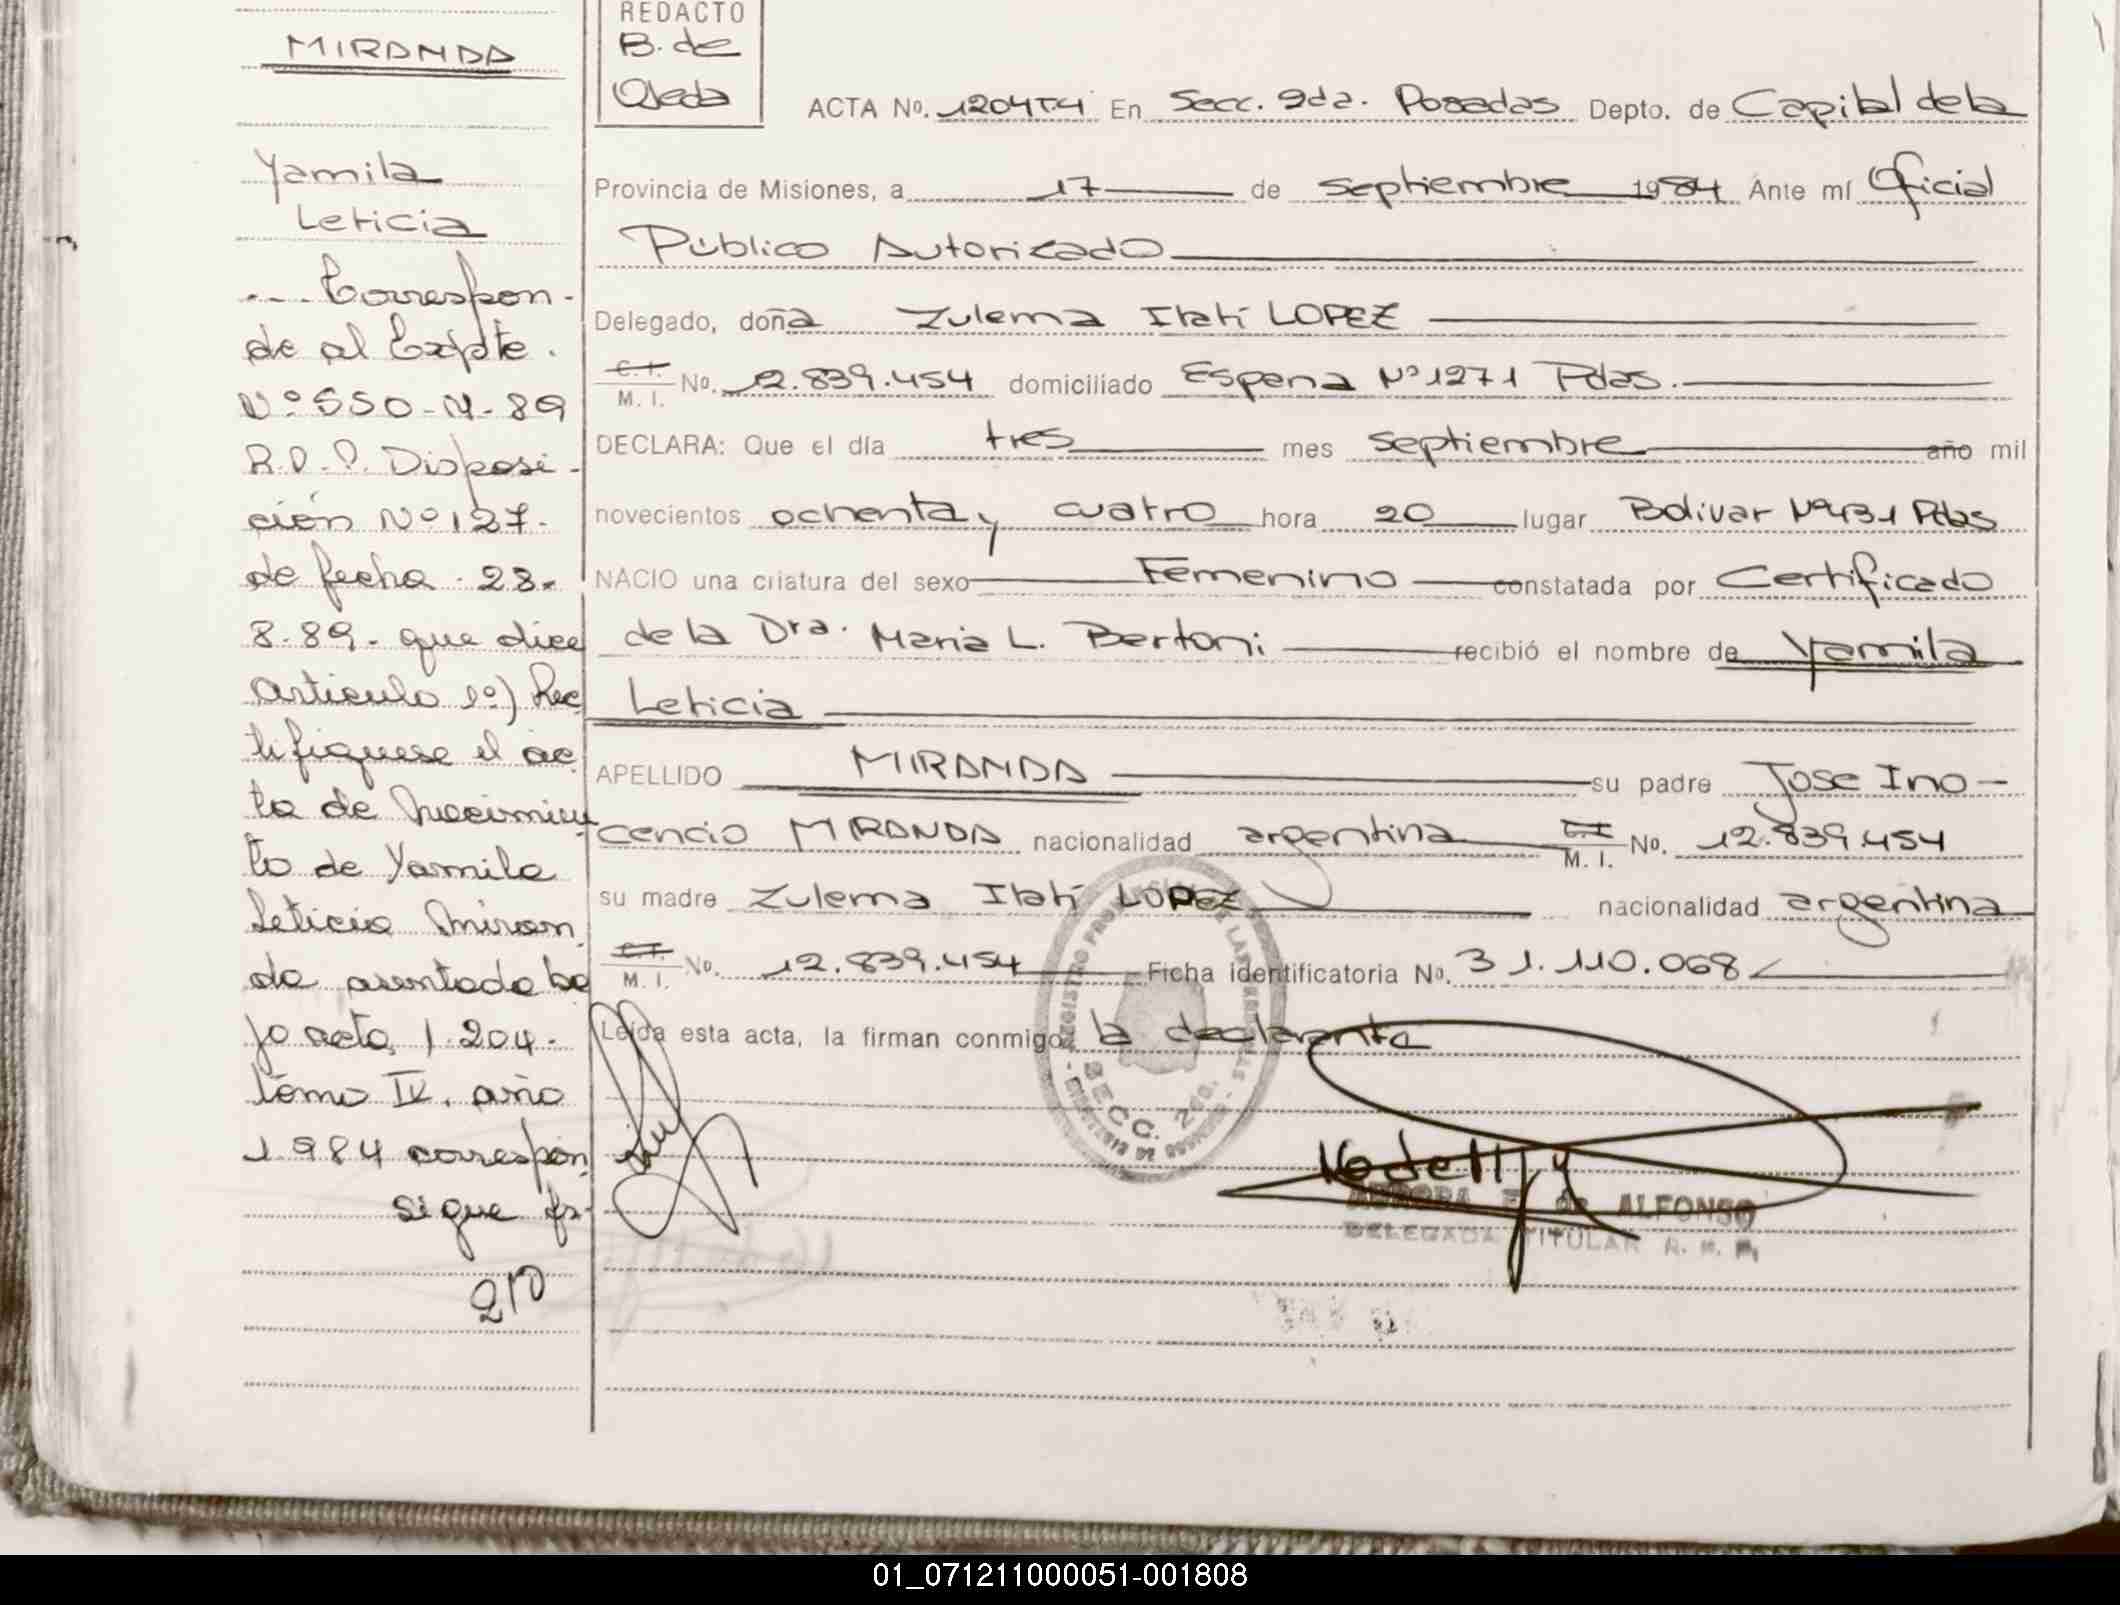 MIRANDA
Yamila
Leticia
--- Correspon-
de al Expte.
Nº 550-M-89
R.P.P. Disposi-
ción Nº 127-
de fecha 28-
8-89- que dice
artículo 1º) Rec
tifíquese el ac
ta de Nacimien
to de Yamila
Leticia Miran
da asentado ba
jo acta 1.204-
tomo IV. año
1984 correspon
sigue fs-
210
REDACTO
B. de
Ojeda
ACTA Nº. 1204T.4 En Secc. 2da. Posadas Depto. de Capital de la
Provincia de Misiones, a 17 de septiembre 1984 Ante mí Oficial
Público Autorizado
Delegado, doña Zulema Itatí LOPEZ
C.I. M. I. No. 12.839.454 domiciliado España Nº 1271 Pdas.
DECLARA: Que el día tres mes septiembre año mil
novecientos ochenta y cuatro hora 20 lugar Bolivar Nº 431 Pdas
NACIO una criatura del sexo Femenino constatada por Certificado
de la Dra. Maria L. Bertoni recibió el nombre de Yamila
Leticia
APELLIDO MIRANDA su padre Jose Ino-
cencio MIRANDA nacionalidad argentina C.I. M. I. No. 12.839.454
su madre Zulema Itatí LOPEZ nacionalidad argentina
C.I. M. I. No. 12.839.454 Ficha identificatoria No. 31.110.068
Leída esta acta, la firman conmigo la declarante
REGISTRO PROVINCIAL DE LAS PERSONAS
SECC. 2da.
- MINISTERIO DE GOBIERNO -
DE ALFONSO
DELEGADA TITULAR R. P. P.
01_071211000051-001808